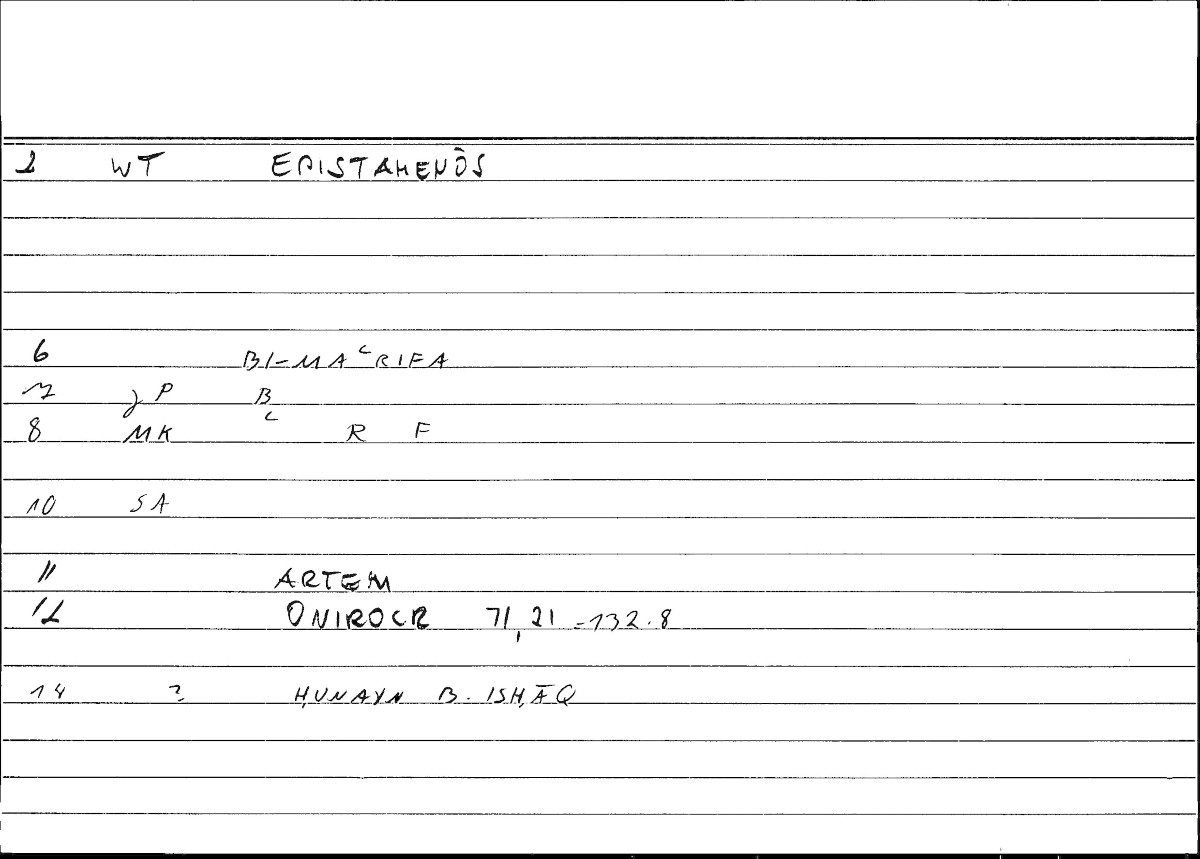 2 WT EPISTAMENŌS
6 BI-MAʿRIFA
7 JP B
8 MK ʿ R F
10 SA
11 ARTEM
12 ONIROCR 71,21 = 132.8
14 ? ḤUNAYN B. ISḤĀQ